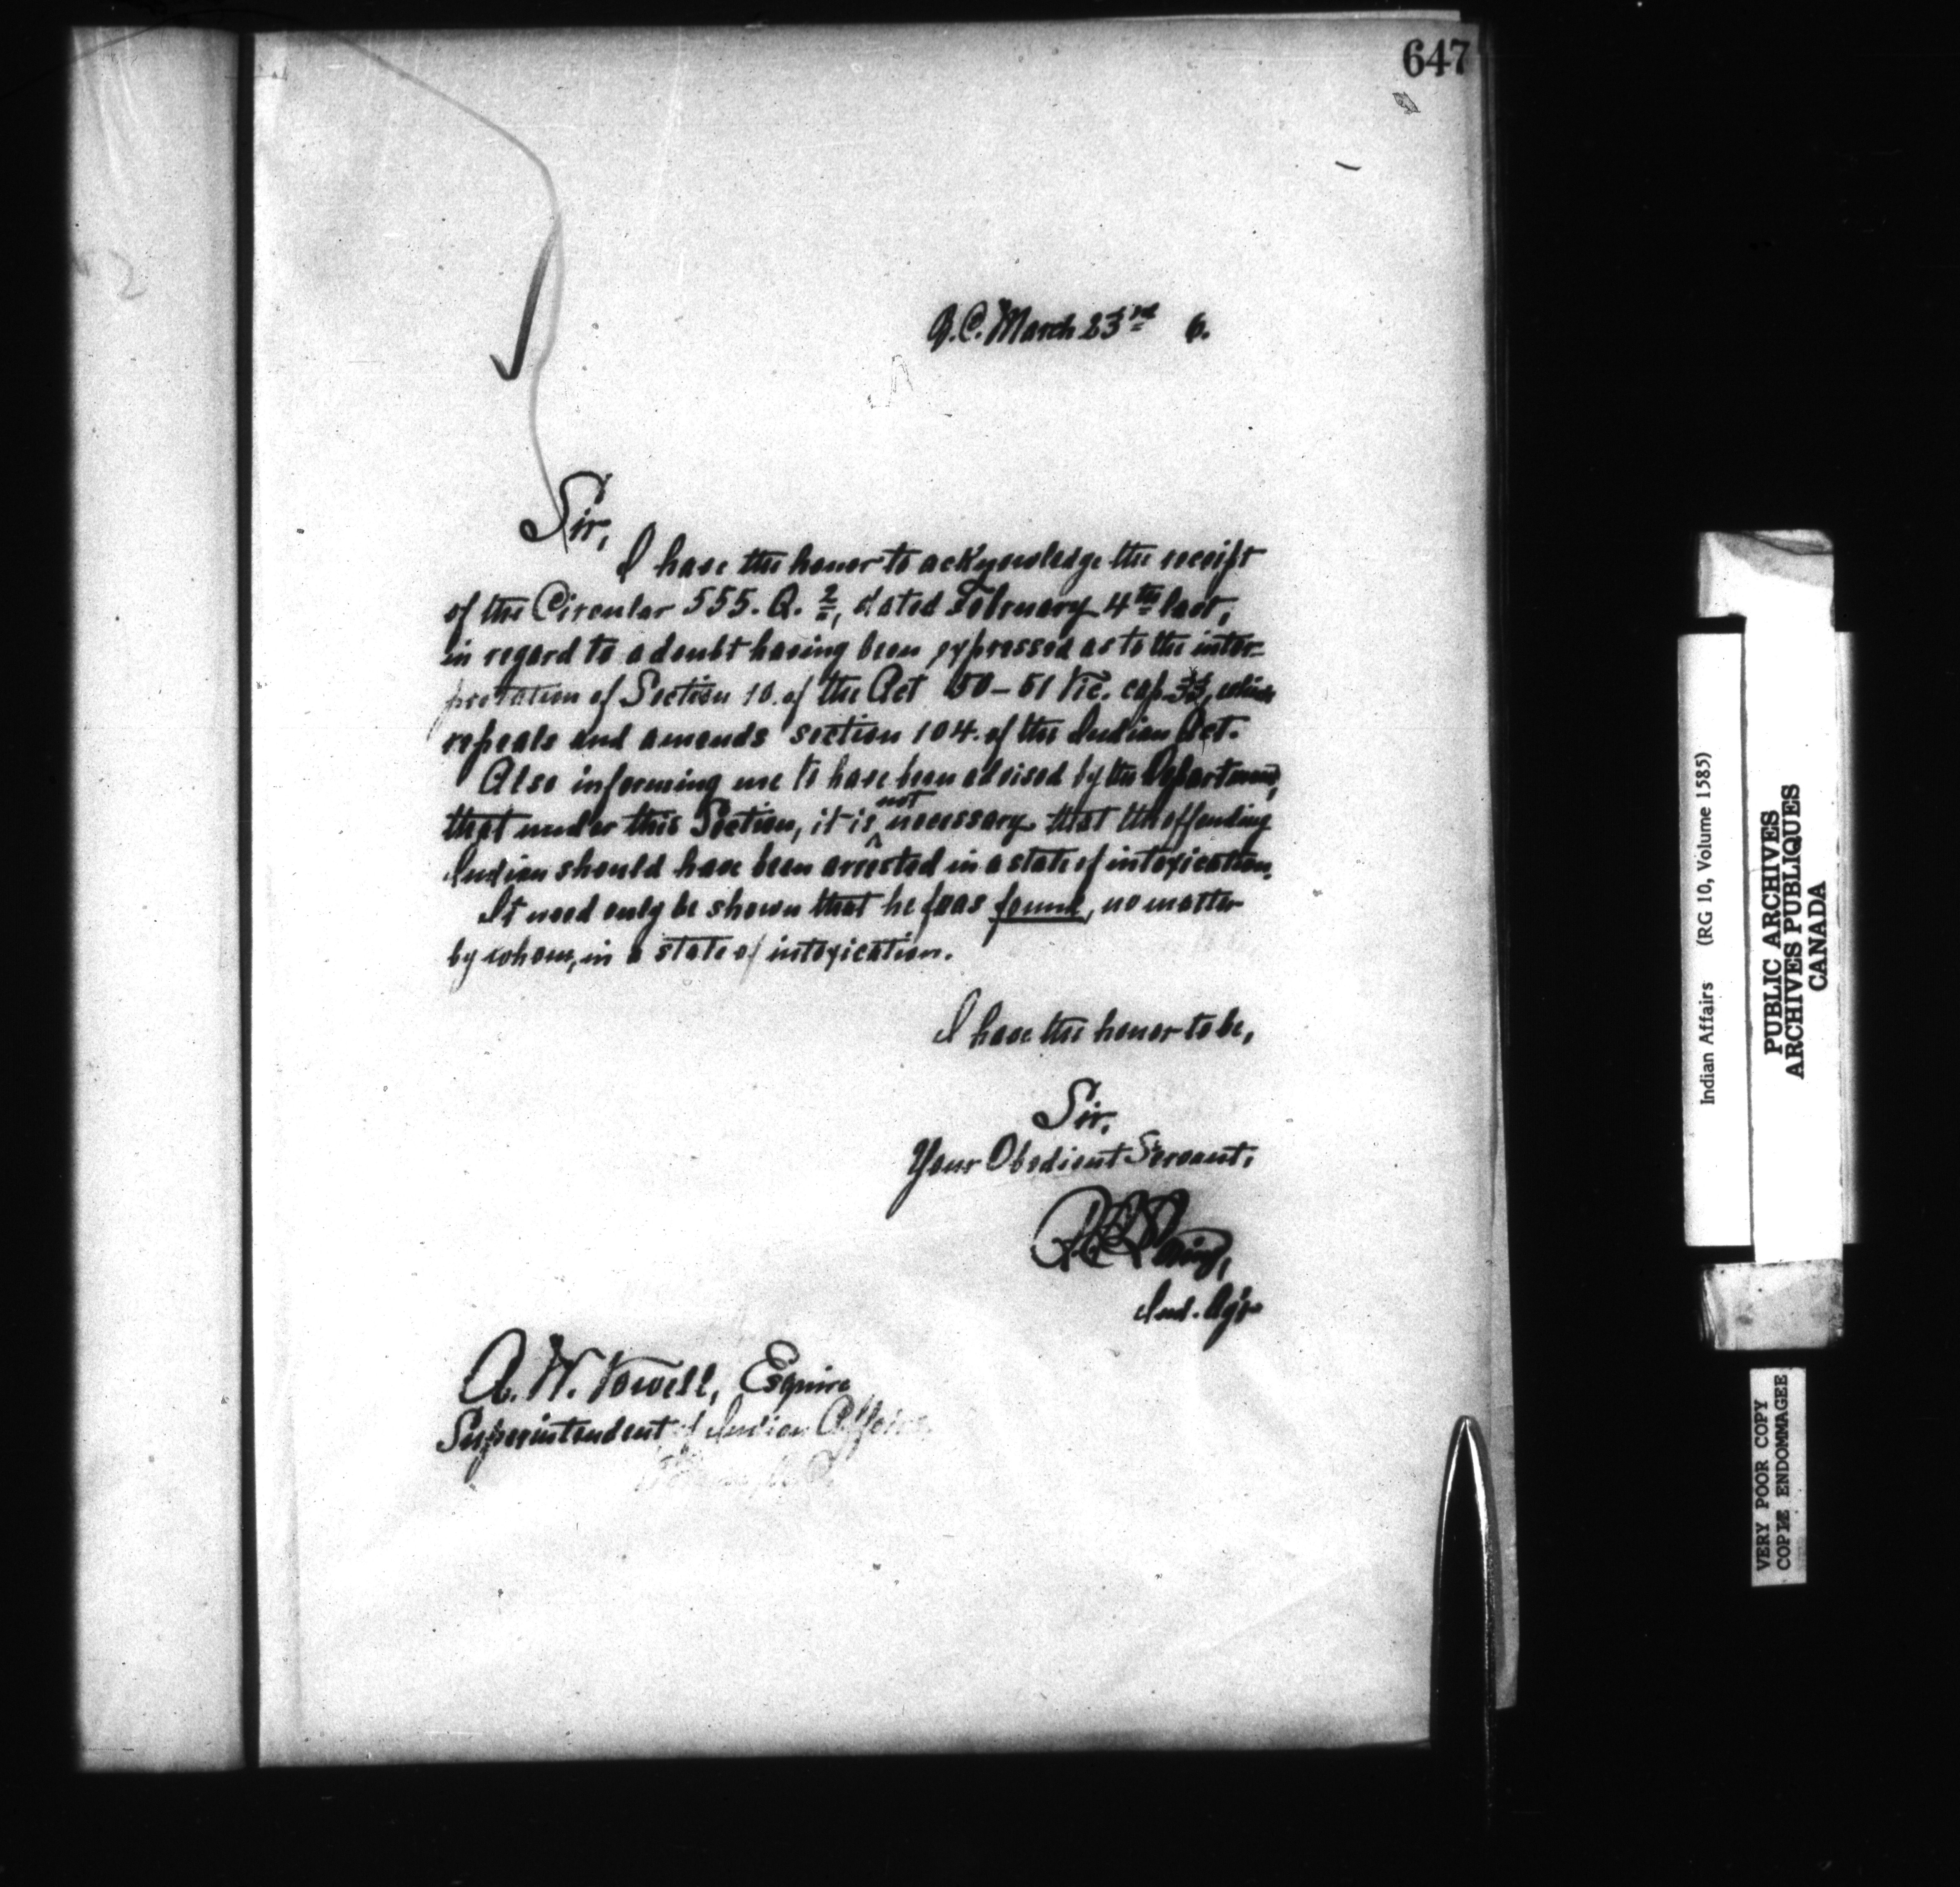 647
B.C. March 23rd 6.
Sir,
I have the honor to acknowledge the receipt
of the Circular 555. Q. 2, dated February 4th last,
in regard to a doubt having been expressed as to the inter-
pretation of Section 10. of the Act 50-51 Vic. cap. 33, which
repeals and amends section 104. of the Indian Act.
Also informing me to have been advised by the Department,
that under this Section, it is not necessary that the offending
Indian should have been arrested in a state of intoxication.
It need only be shown that he was found, no matter
by whom, in a state of intoxication.
I have the honor to be,
Sir,
Your Obedient Servant,
Ind. Agt.
A. W. Vowell, Esquire
Superintendent of Indian Affairs,
Indian Affairs (RG 10, Volume 1585)
PUBLIC ARCHIVES
ARCHIVES PUBLIQUES
CANADA
VERY POOR COPY
COPIE ENDOMMAGEE